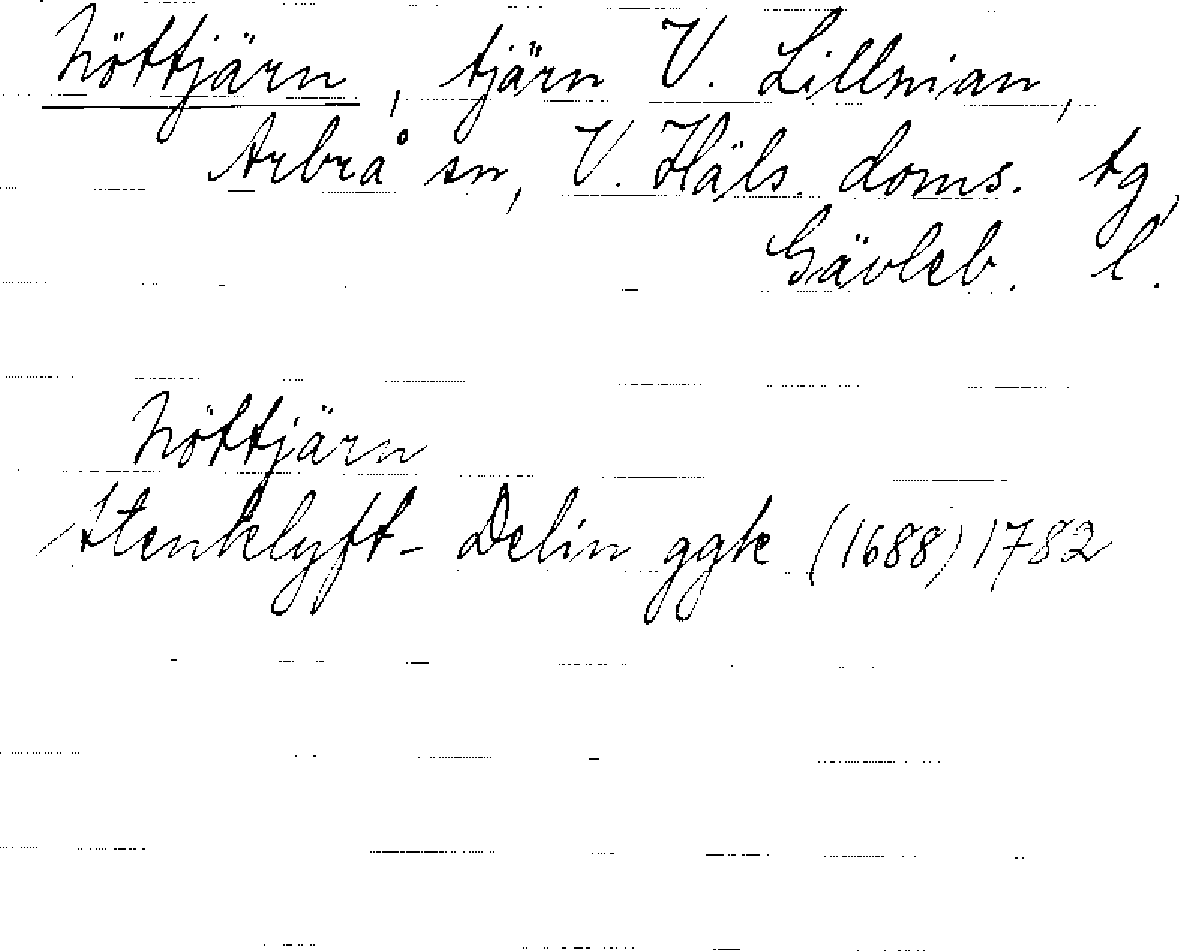 Nöttjärn, tjärn V. Lillnian,
Arbrå sn, V. Häls. doms. tg,
Gävleb. l.
Nöttjärn
Stenklyft- Delin ggk (1688) 1782